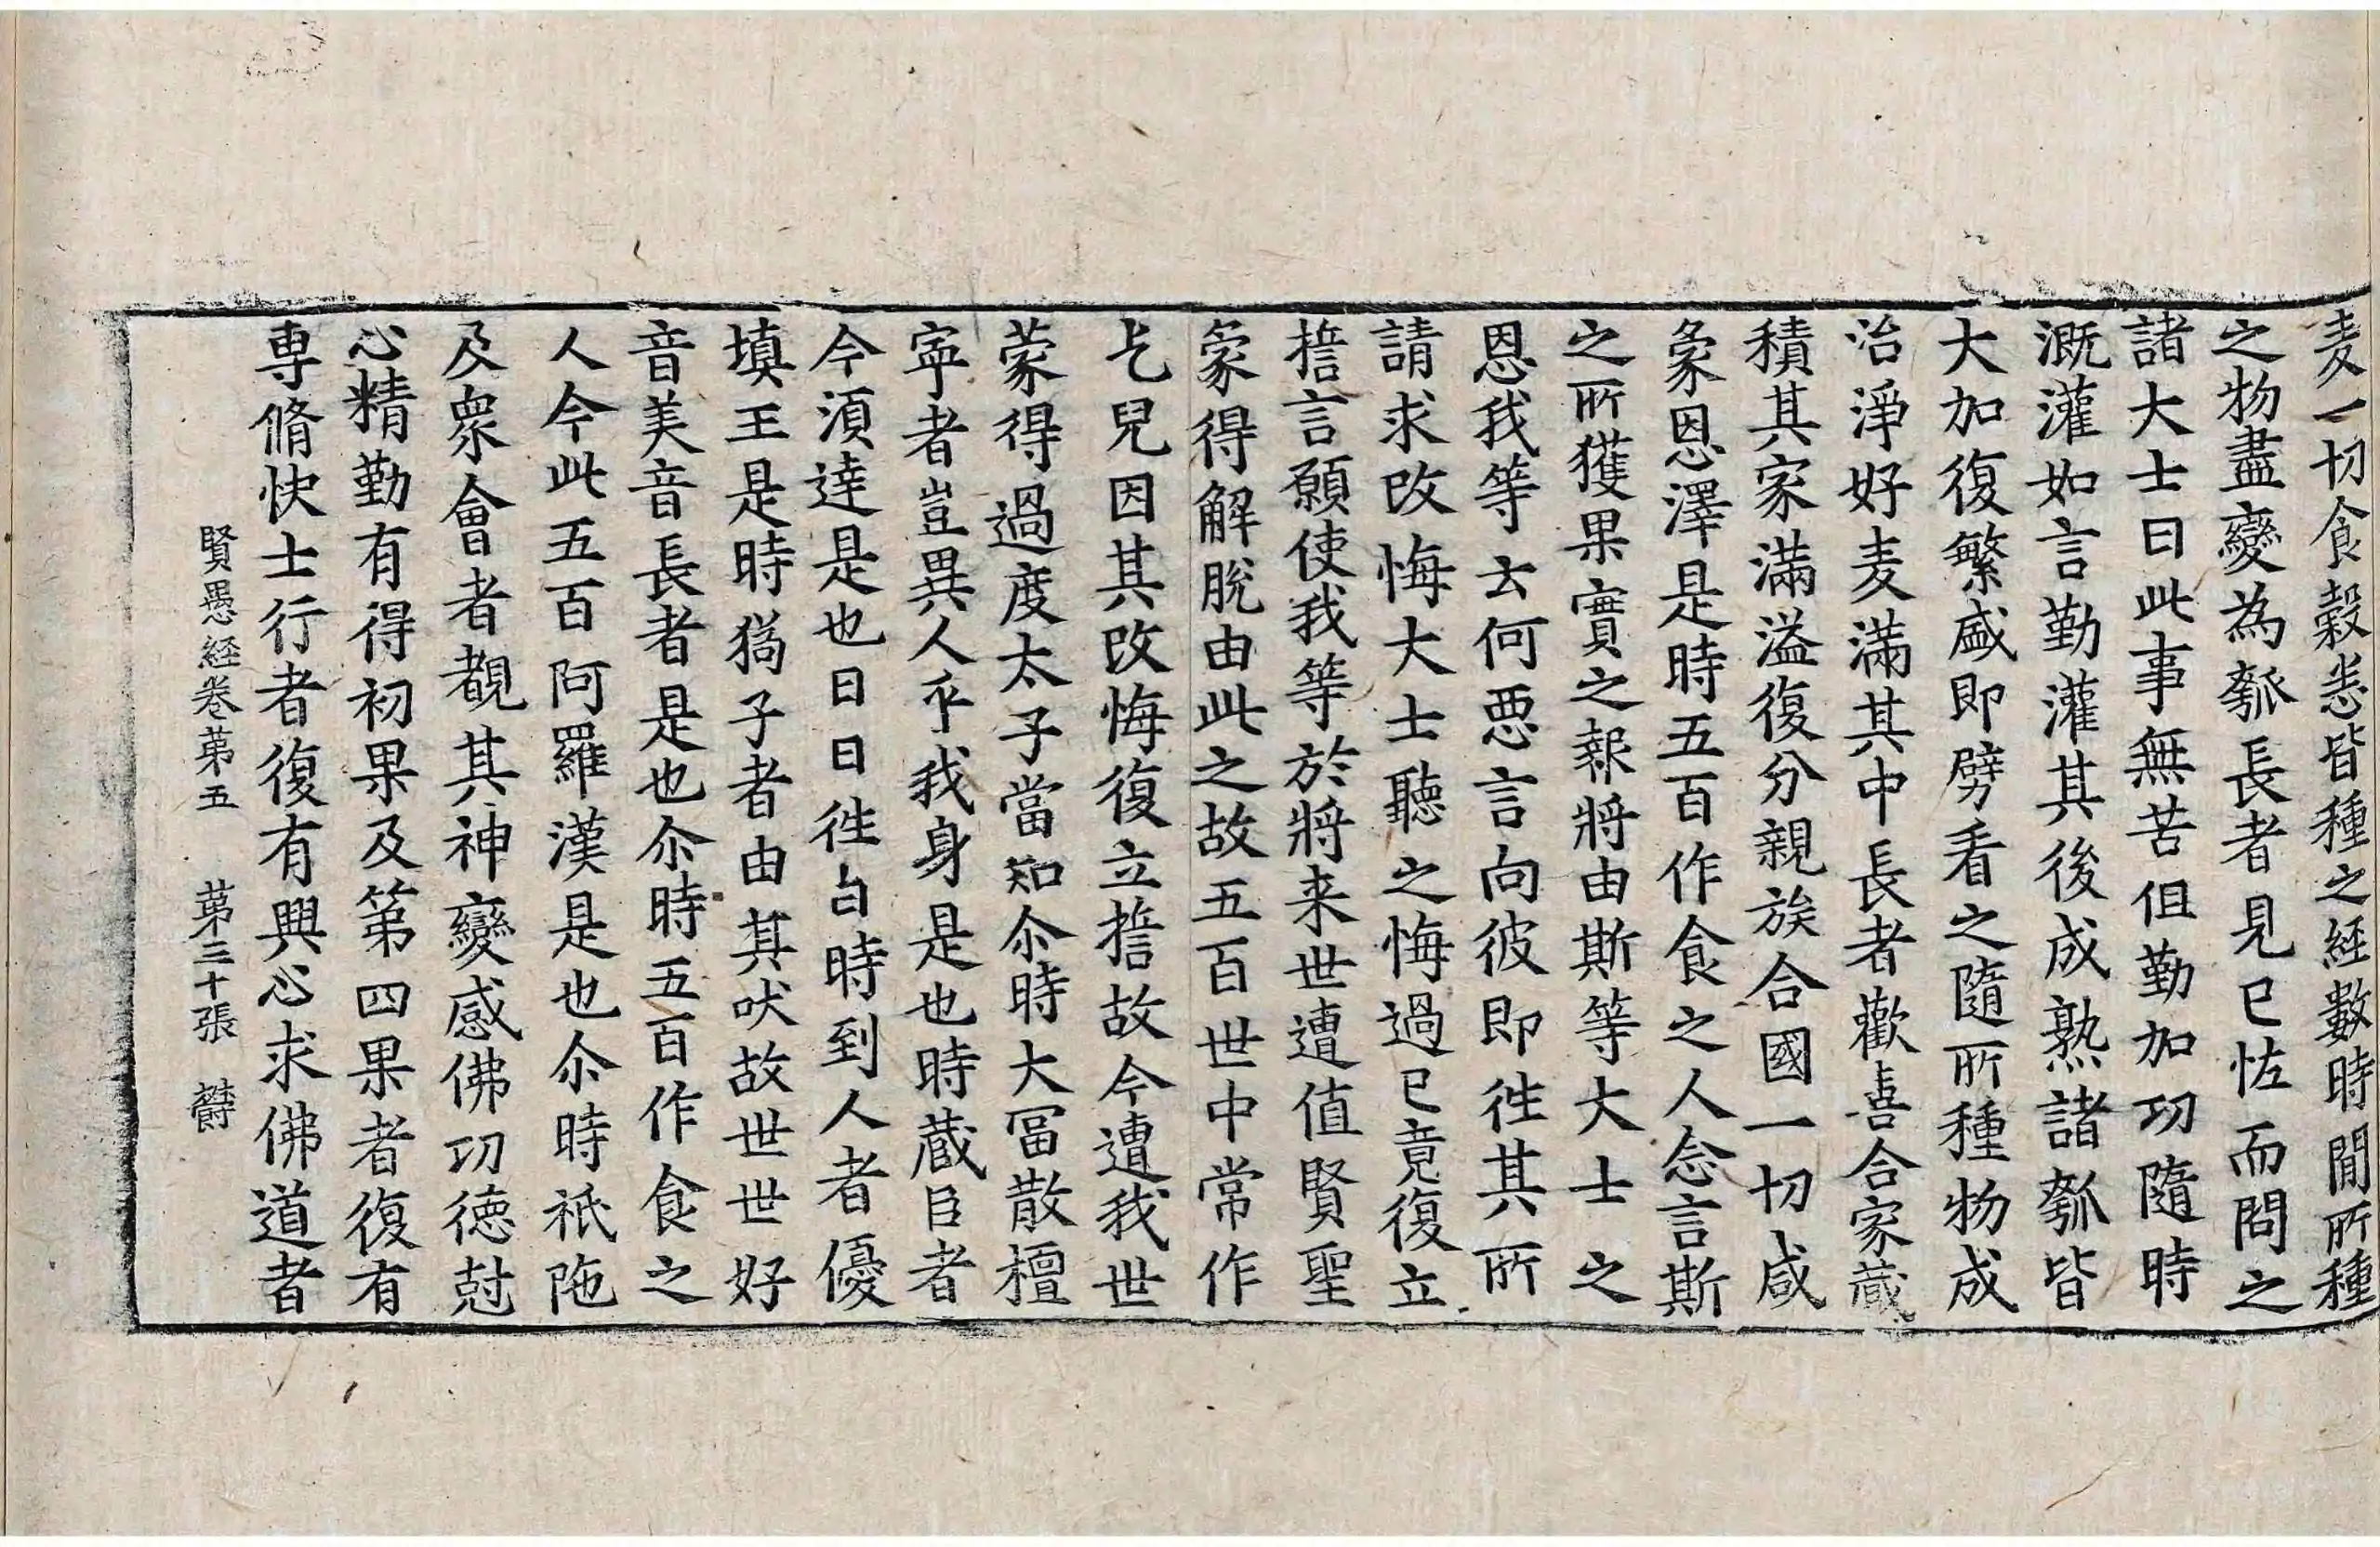 麦一切食穀悉皆種之經數時間所種
之物盡變為瓠長者見已恠而問之
諸大士曰此事無苦但勤加功隨時
溉灌如言勤灌其後成熟諸瓠皆
大加復繁盛即劈看之隨所種物成
治淨好麦滿其中長者歡喜合家藏
積其家滿溢復分親族合國一切咸
蒙恩澤是時五百作食之人念言斯
之所獲果實之報將由斯等大士之
恩我等云何惡言向彼即徃其所
請求改悔大士聽之悔過已竟復立
擔言願使我等於將来世遭值賢聖
蒙得解脫由此之故五百世中常作
乞兒因其改悔復立誓故今遭我世
蒙得過度太子當知尒時大冨散檀
寧者豈異人乎我身是也時蔵臣者
今湏達是也日日徃白時到人者優
填王是時猧子者由其吠故世世好
音美音長者是也尒時五百作食之
人今此五百阿羅漢是也尒時祇陁
及衆會者覩其神變感佛功德尅
心精勤有得初果及第四果者復有
専脩快士行者復有興心求佛道者
賢愚經卷第五 第三十張 欝